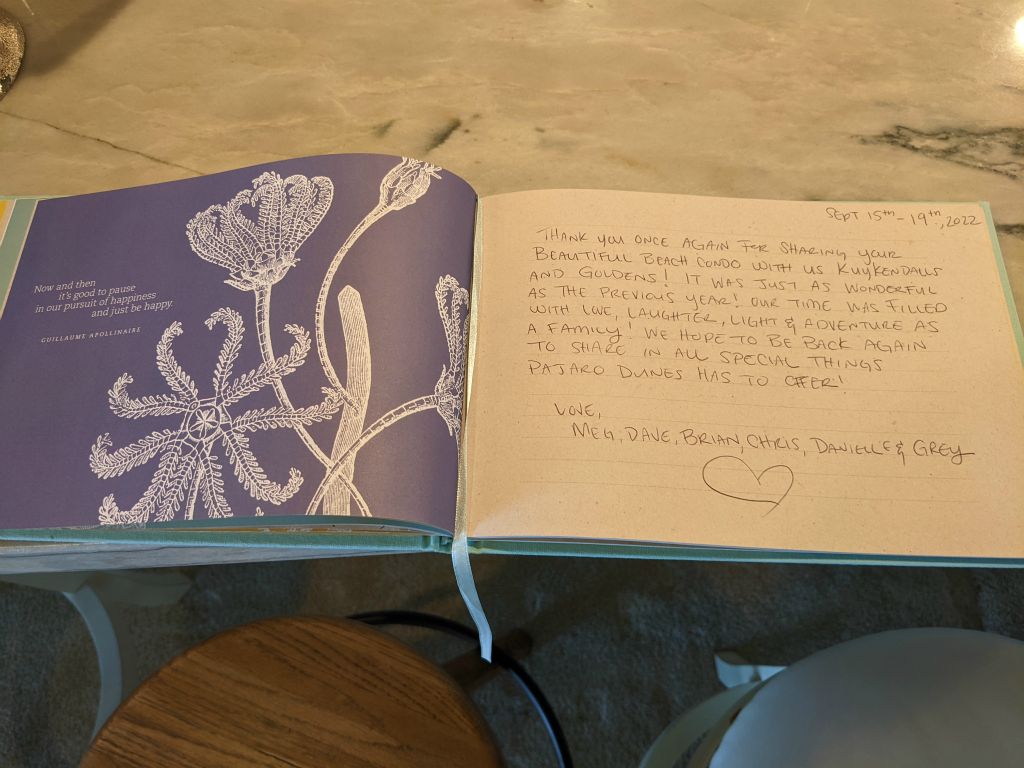 Now and then
it's good to pause
in our pursuit of happiness
and just be happy.
GUILLAUME APOLLINAIRE
SEPT 15th - 19th, 2022
THANK YOU ONCE AGAIN FOR SHARING YOUR
BEAUTIFUL BEACH CONDO WITH US KUYKENDALLS
AND GOLDENS! IT WAS JUST AS WONDERFUL
AS THE PREVIOUS YEAR! OUR TIME WAS FILLED
WITH LOVE, LAUGHTER, LIGHT & ADVENTURE AS
A FAMILY! WE HOPE TO BE BACK AGAIN
TO SHARE IN ALL SPECIAL THINGS
PAJARO DUNES HAS TO OFFER!
LOVE,
MEG, DAVE, BRIAN, CHRIS, DANIELLE & GREY